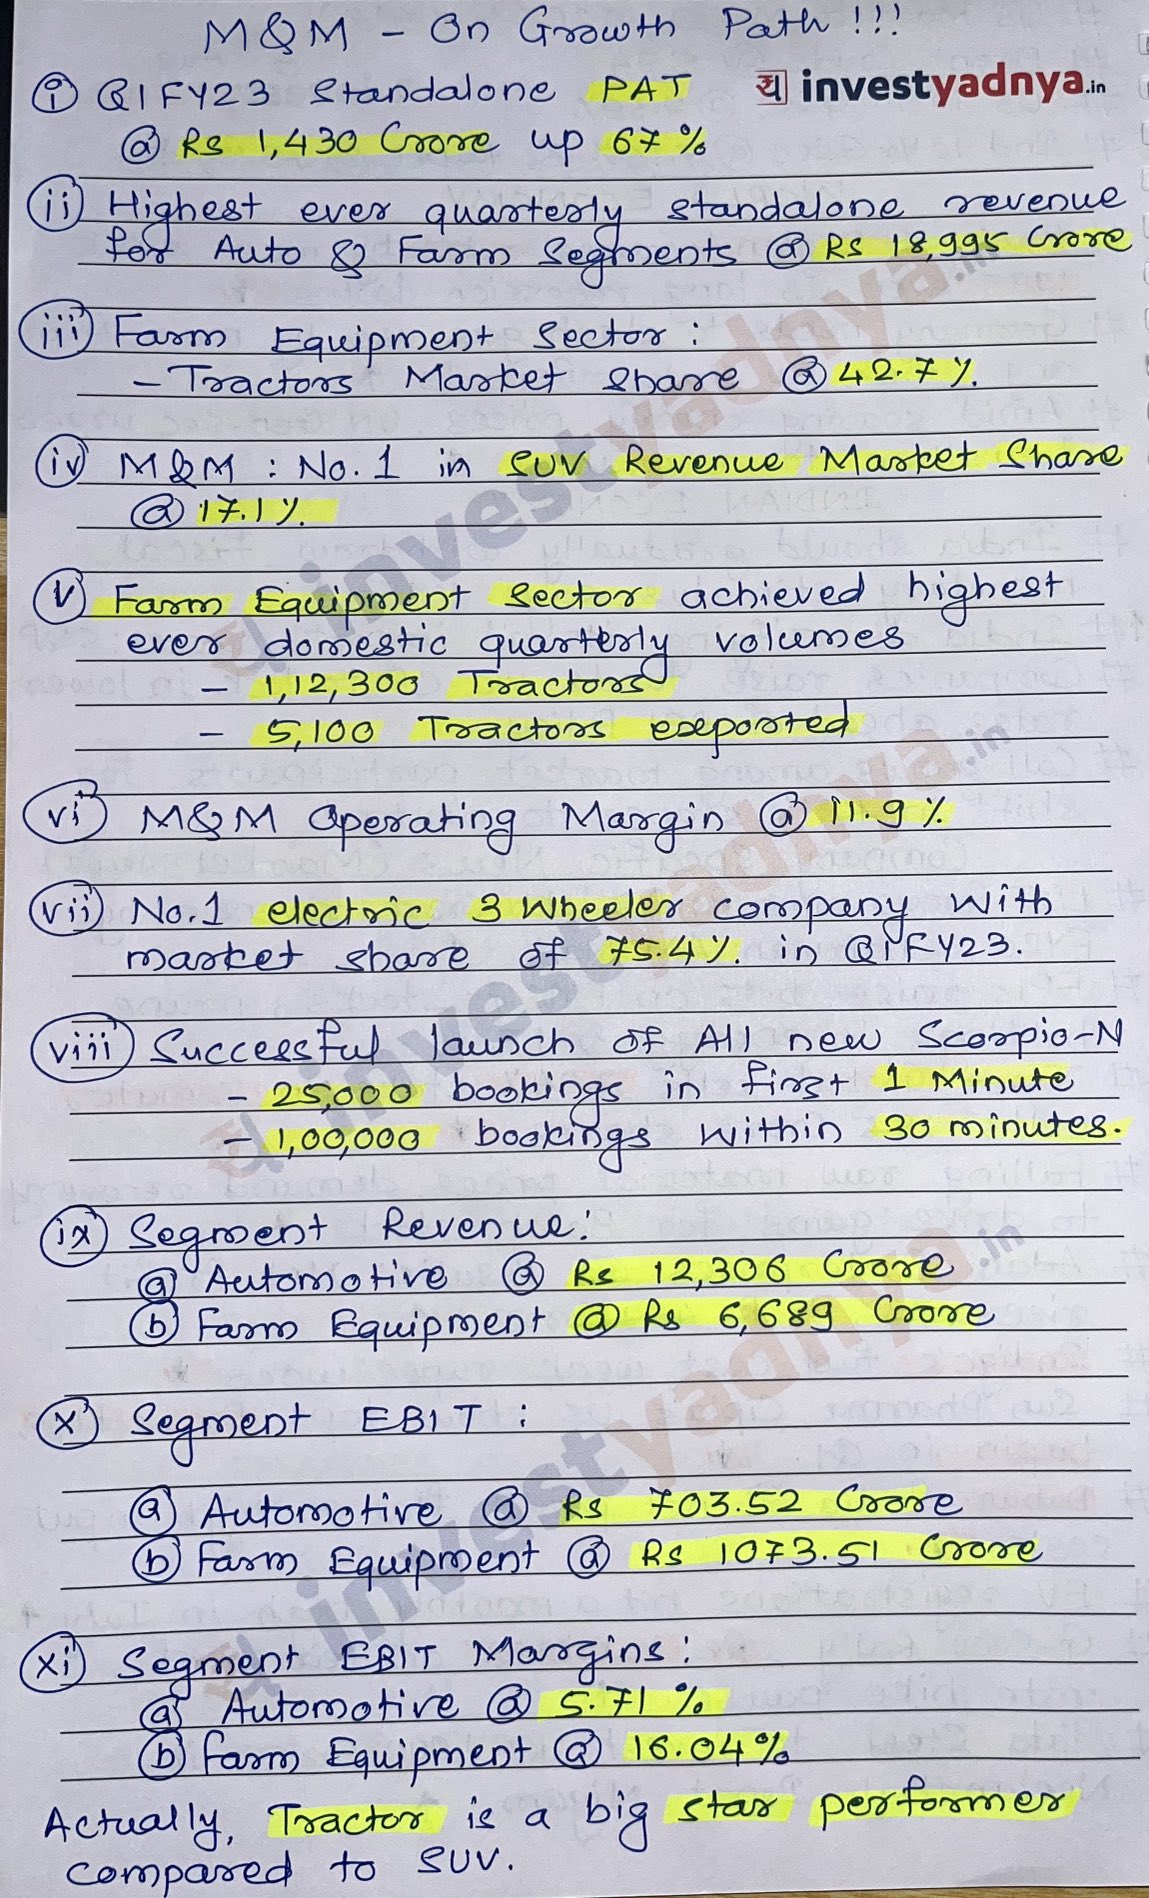 M&M - On Growth Path !!!
i Q1FY23 Standalone PAT
य investyadnya.in
@ Rs 1,430 Crore up 67%
ii Highest ever quarterly standalone revenue
for Auto & Farm Segments @ Rs 18,995 Crore
iii Farm Equipment Sector :
- Tractors Market Share @ 42.7%.
iv M&M : No.1 in SUV Revenue Market Share
@ 17.1%.
v Farm Equipment Sector achieved highest
ever domestic quarterly volumes
- 1,12,300 Tractors
- 5,100 Tractors exported
vi M&M Operating Margin @ 11.9%
vii No.1 electric 3 Wheeler company with
market share of 75.4%. in Q1FY23.
viii Successful launch of All new Scorpio-N
- 25,000 bookings in first 1 Minute
- 1,00,000 bookings within 30 minutes.
ix Segment Revenue:
a Automotive @ Rs 12,306 Crore
b Farm Equipment @ Rs 6,689 Crore
x Segment EBIT :
a Automotive @ Rs 703.52 Crore
b Farm Equipment @ Rs 1073.51 Crore
xi Segment EBIT Margins:
a Automotive @ 5.71%
b Farm Equipment @ 16.04%
Actually, Tractor is a big star performer
compared to SUV.
investyadnya.in
investyadnya.in
investyadnya.in